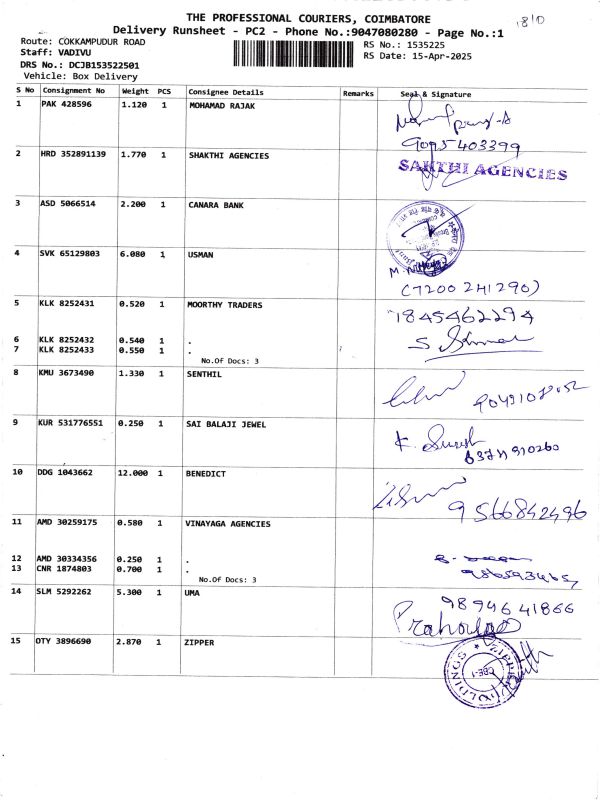 THE PROFESSIONAL COURIERS, COIMBATORE
Delivery Runsheet - PC2 - Phone No.:9047080280 - Page No.:1
Route: COKKAMPUDUR ROAD
RS No.: 1535225
Staff: VADIVU
RS Date: 15-Apr-2025
DRS No.: DCJB153522501
Vehicle: Box Delivery
S No Consignment No Weight PCS Consignee Details Remarks Seal & Signature
1 PAK 428596 1.120 1 MOHAMAD RAJAK
9095403399
2 HRD 352891139 1.770 1 SHAKTHI AGENCIES
SAKTHI AGENCIES
3 ASD 5066514 2.200 1 CANARA BANK
4 SVK 65129803 6.080 1 USMAN
(7200241290)
5 KLK 8252431 0.520 1 MOORTHY TRADERS
9845462294
6 KLK 8252432 0.540 1 .
7 KLK 8252433 0.550 1 .
No.Of Docs: 3
8 KMU 3673490 1.330 1 SENTHIL
9 KUR 531776551 0.250 1 SAI BALAJI JEWEL
K. Suresh
10 DDG 1043662 12.000 1 BENEDICT
9566842496
11 AMD 30259175 0.580 1 VINAYAGA AGENCIES
12 AMD 30334356 0.250 1 .
13 CNR 1874803 0.700 1 .
No.Of Docs: 3
14 SLM 5292262 5.300 1 UMA
9894641866
15 OTY 3896690 2.870 1 ZIPPER
ZIPPER HOLDINGS
CBE-1